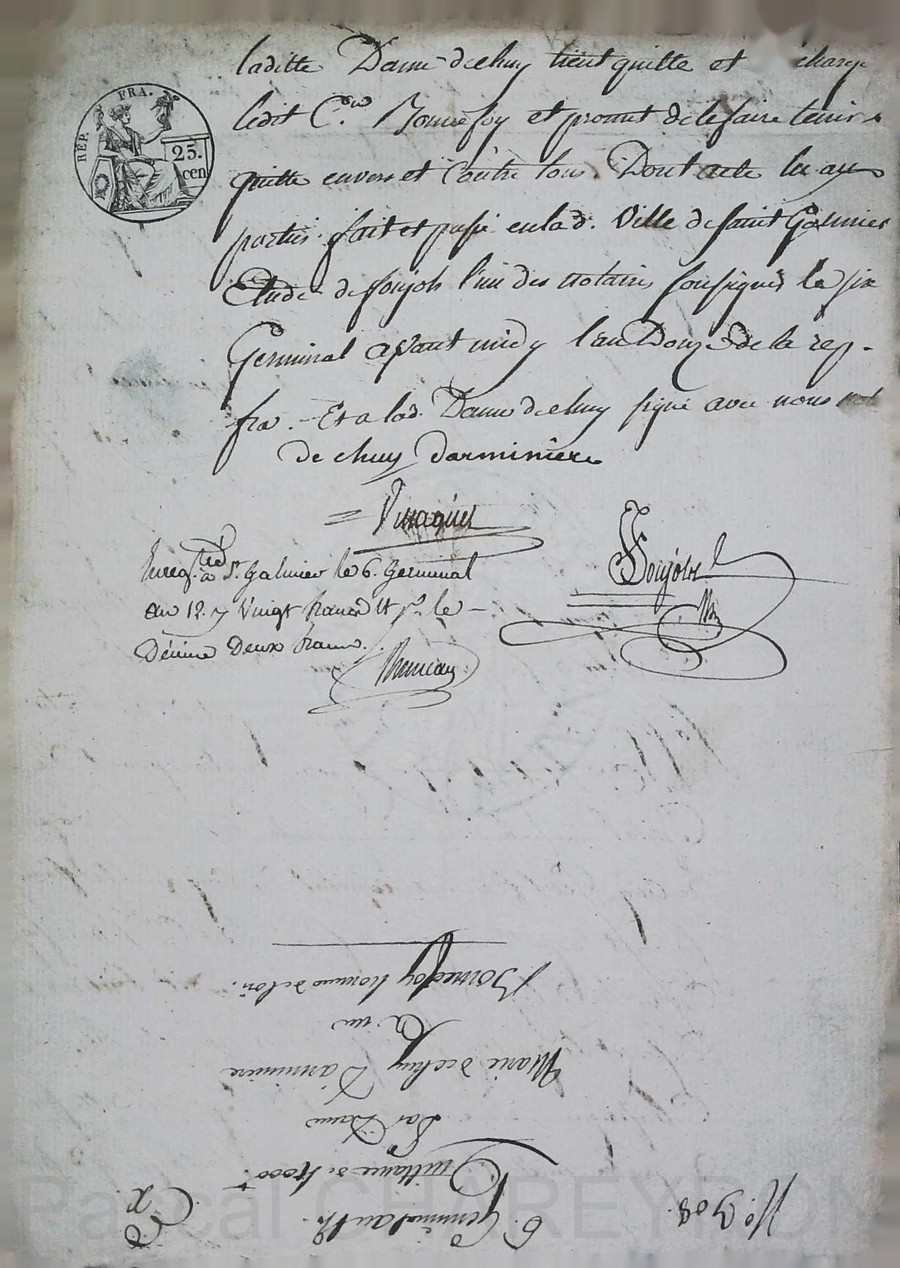 RÉP. FRA.
25.
cen
laditte Dame dechuy tient quitte et charge
ledit C.en Bonnefoy et promet de le faire tenir
quitte envers et Contre tous. Dont acte lu aux
parties. fait et passé en lad. Ville de Saint Galmier
Etude de Soujols l'un des notaires soussignés le six
Germinal avant midy l'an Douze de la rep.
fra. - Et a lad. Dame dechuy signé avec nous not
de chuy darminiere
Soujols
Nre
Enregistré à St. Galmier le 6. Germinal
an 12. vingt francs et pr. le -
Décime Deux francs.
No. 308.
6. Germinal an 12.
Quittance de
Par Dame
Marie dechuy Darminiere
Bonnefoy homme de loi.
Pascal CHAREYRON